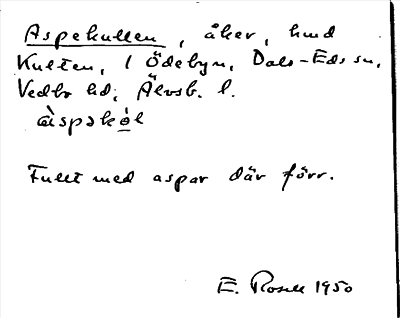 Aspekullen, åker, hmd
Kullen, 1 Ödebyn, Dals-Eds sn,
Vedbo hd, Älvsb. l.
àspəkò̱l
Fullt med aspar där förr.
E. Rosell 1950